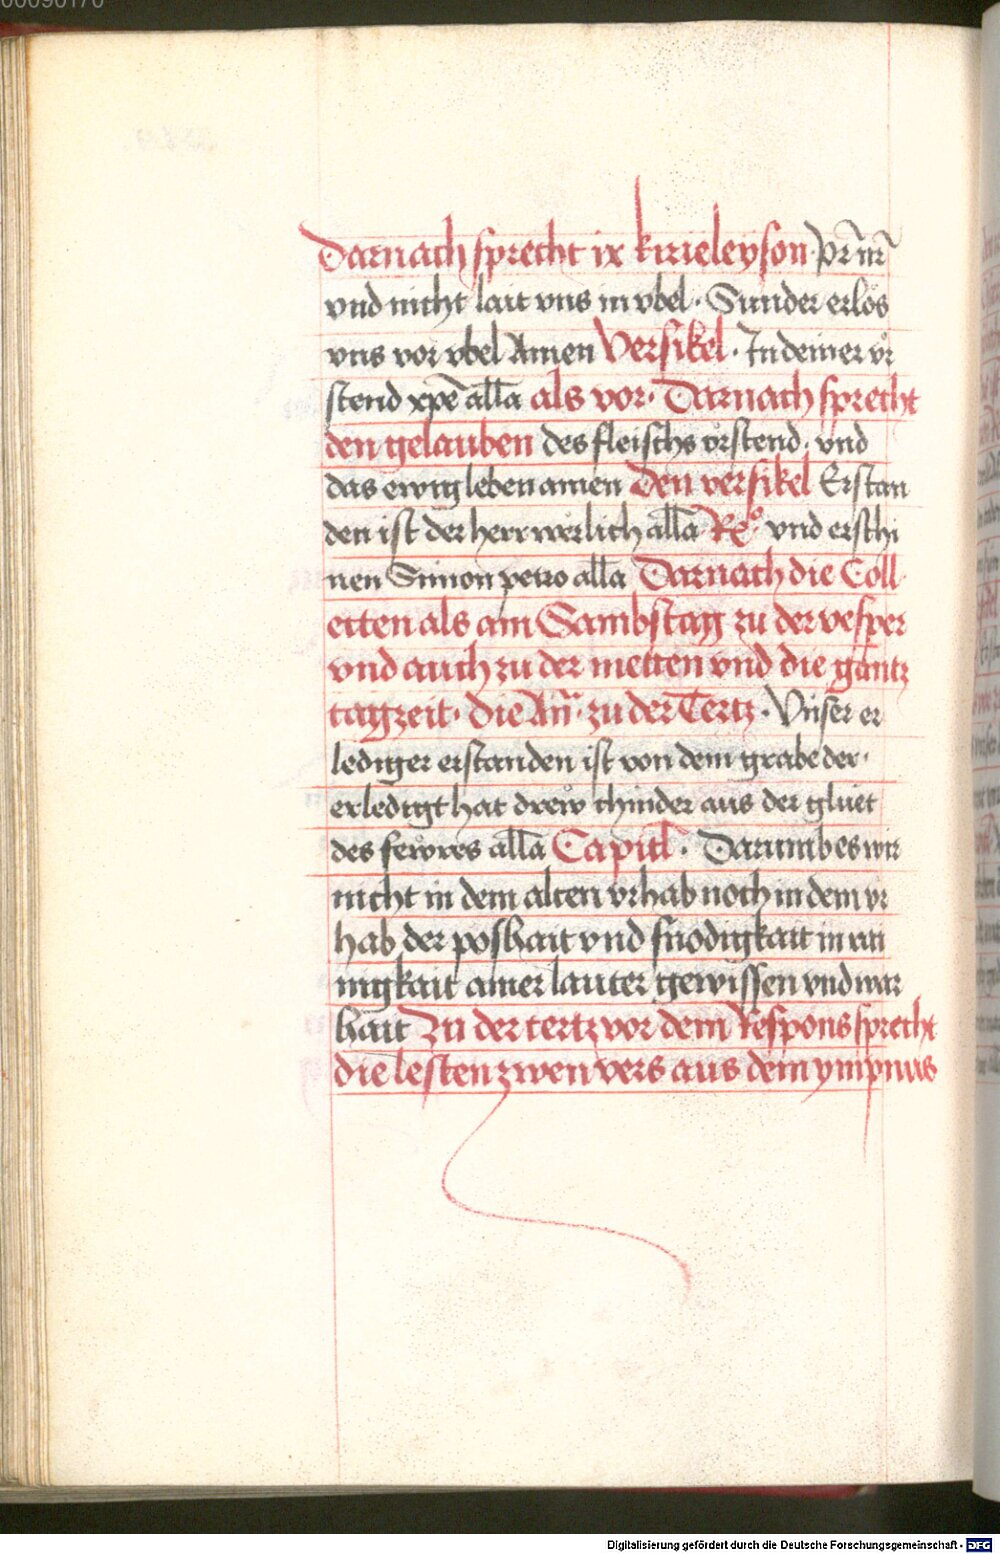 00090170
Darnach sprecht ix kirieleyson · Pr̄ nr̄
vnd nicht lait vns in vbel · Sunder erlös
vns vor vbel Amen Versikel · In deiner vr
stend xpē all̄a als vor · Darnach sprecht
den gelauben des fleischs vrstend · vnd
das ewig leben amen Den versikel Erstan
den ist der herr werlich all̄a Rx° vnd erschi
nen Simon petro alla Darnach die Coll
ecten als am Sambstag zu der vesper
vnd auch zu der metten vnd die gantz
tagzeit · die An̄ · zu der Tertz · Vnser er
lediger erstanden ist von dem grabe der ·
erledigt hat drew chinder aus der gluet
des fewres all̄a Capitl · Darumb es wir
nicht in dem alten vrhab noch in dem vr
hab der poshait vnd snodigkait in rai
nigkait ainer lauter gewissen vnd war
hait Zu der tertz vor dem Respons sprecht
die lesten zwen vers aus dem ympnus
Digitalisierung gefördert durch die Deutsche Forschungsgemeinschaft - DFG